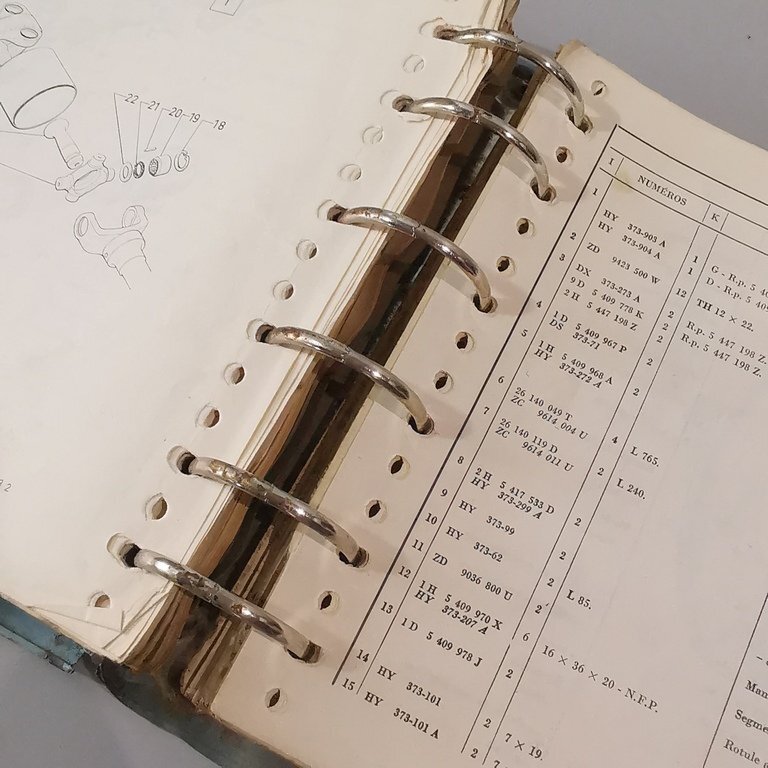 22 21 20 19 18
I NUMÉROS K
1 HY 373-903 A 1 G - R.p. 5
HY 373-904 A 1 D - R.p. 5
2 ZD 9423 500 W 12 TH 12 × 22.
3 DX 373-273 A 2 R.p. 5 447 198 Z.
9 D 5 409 778 K 2 R.p. 5 447 198 Z.
2 H 5 447 198 Z 2
4 1 D 5 409 967 P 2
DS 373-71
5 1 H 5 409 968 A
HY 373-272 A
6 26 140 049 T 4 L 765.
ZC 9614 004 U
7 26 140 119 D 2 L 240.
ZC 9614 011 U
8 2 H 5 417 533 D 2
HY 373-299 A
9 HY 373-99 2
10 HY 373-62 2 L 85.
11 ZD 9036 800 U 2
12 1 H 5 409 970 X 6 16 × 36 × 20 - N.F.P.
HY 373-207 A
13 1 D 5 409 978 J 2
14 HY 373-101 2 7 × 19.
15 HY 373-101 A 2 7
Rotule